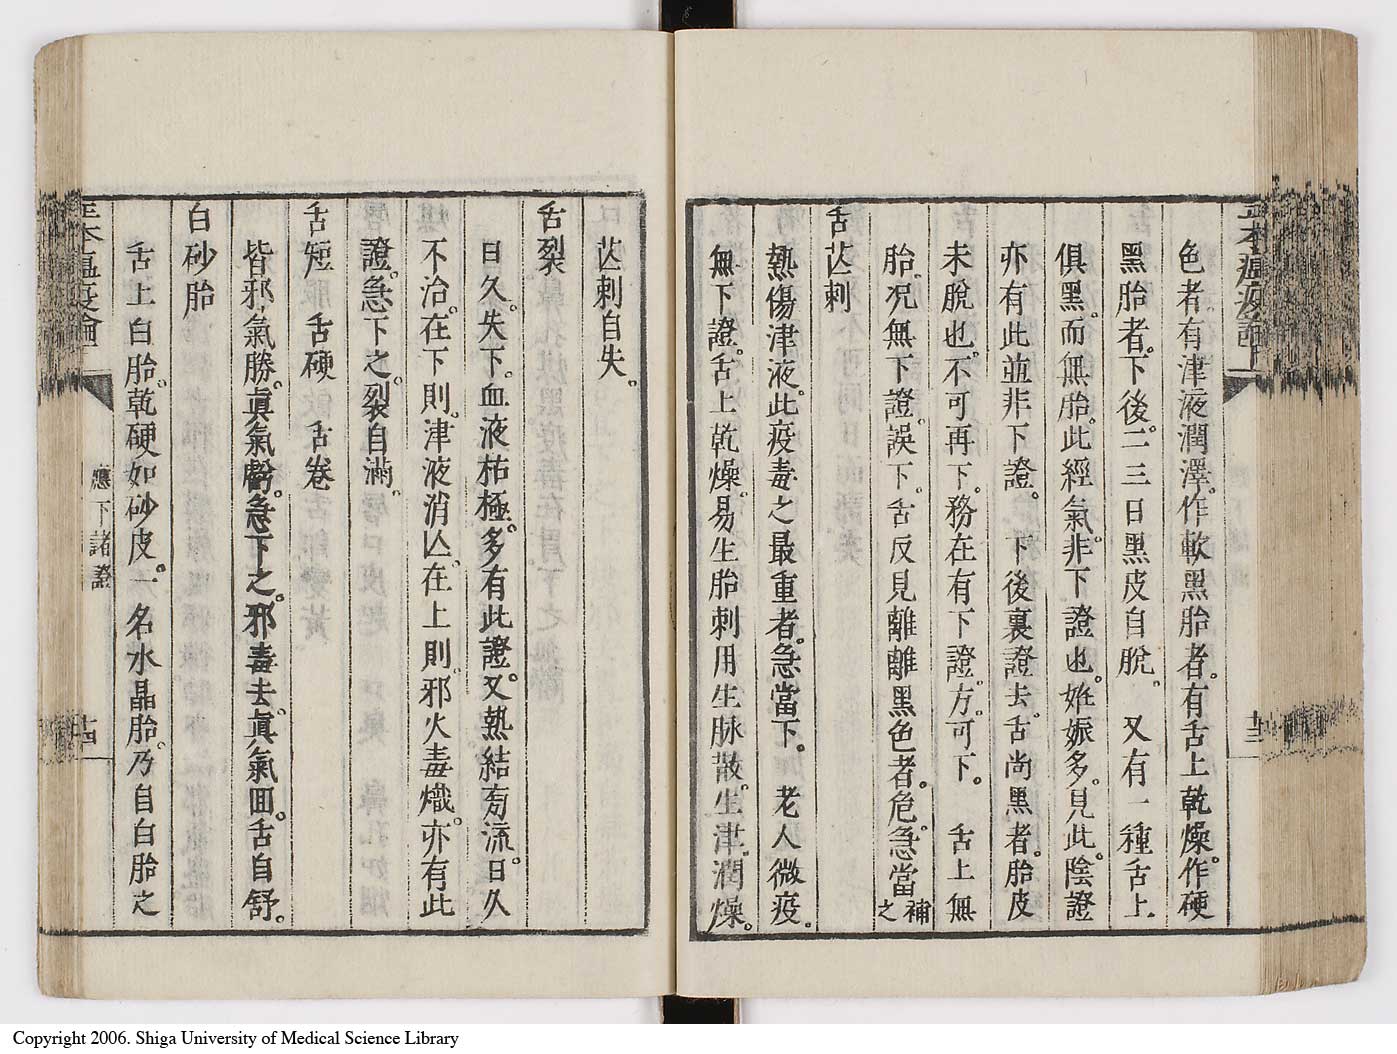 正本瘟疫論上
十三
色者有津液潤澤。作軟黑胎者。有舌上乾燥。作硬
黑胎者。下後。二三日黑皮自脫。 又有一種舌上
俱黑。而無胎。此經氣。非下證也。姙娠多。見此。陰證
亦有此並非下證。下後裏證去。舌尚黑者。胎皮
未脫也。不可再下。務在有下證。方。可下。 舌上無
胎。况無下證。誤下。舌反見離離黑色者。危。急當補之
舌芒刺
熱傷津液。此疫毒之最重者。急當下。老人微疫。
無下證。舌上乾燥。易生胎刺用生脉散。生津。潤燥。
芒刺自失。
舌裂
日久。失下。血液枯極。多有此證。又熱結旁流。日久
不治。在下則。津液消亡。在上則。邪火毒熾。亦有此
證。急下之。裂自滿。
舌短 舌硬 舌卷
皆邪氣勝。眞氣虧。急下之。邪毒去。眞氣囬。舌自舒。
白砂胎
舌上白胎。乾硬如砂皮。一名水晶胎。乃自白胎之
正本瘟疫論
應下諸證
十四
Copyright 2006. Shiga University of Medical Science Library